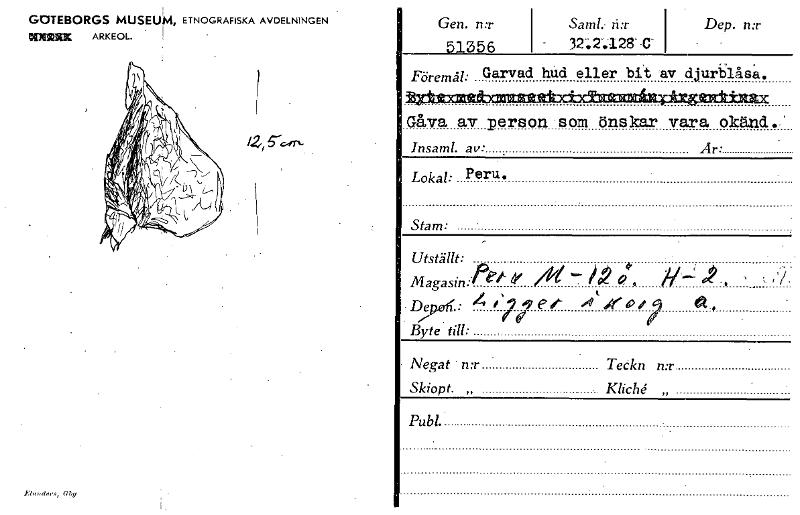 GÖTEBORGS MUSEUM, ETNOGRAFISKA AVDELNINGEN
ARKEOL.
12,5 cm
Elanders, Gbg
Gen. n:r Saml. n:r Dep. n:r
51356 32.2.128 C
Föremål: Garvad hud eller bit av djurblåsa.
Byte med museet i Tucumán, Argentina
Gåva av person som önskar vara okänd.
Insaml. av: År:
Lokal: Peru.
Stam:
Utställt:
Magasin: Peru M-12ö. H-2.
Depon.: Ligger i korg a.
Byte till:
Negat n:r Teckn n:r
Skiopt. „ Kliché „
Publ.